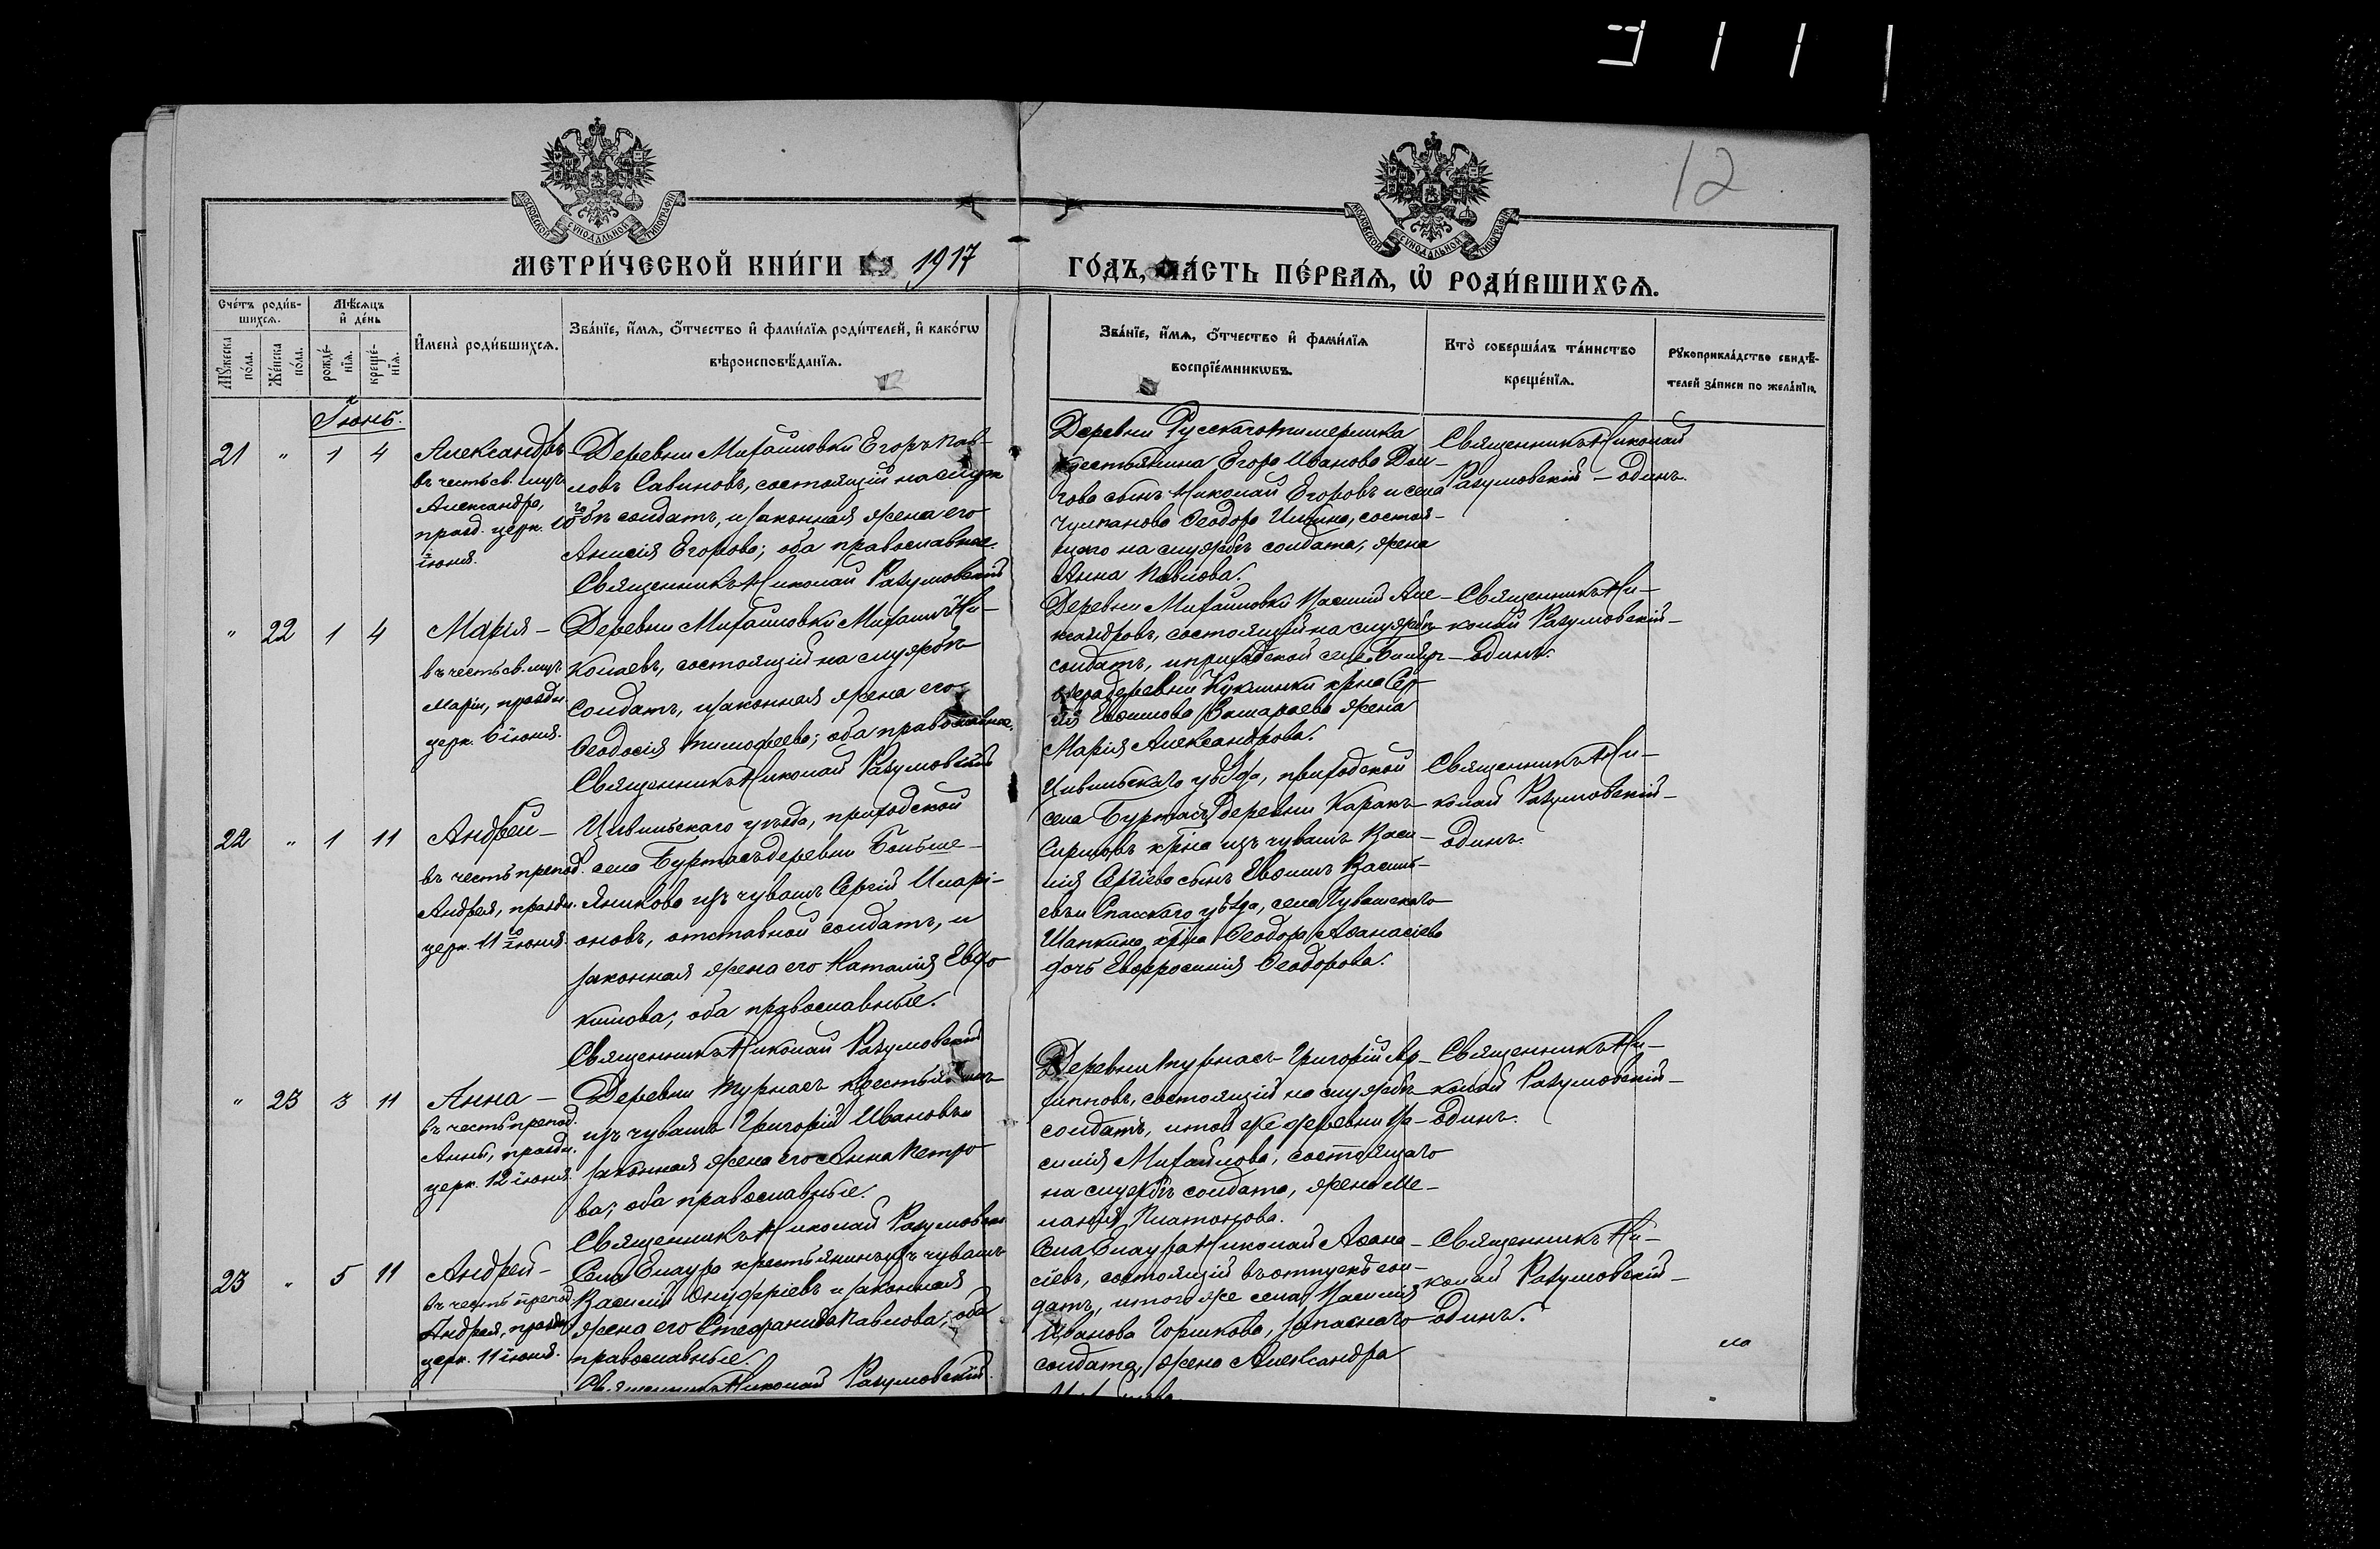 12
МОСКОВСКОЙ СѴНОДАЛЬНОЙ ТИПОГРАФІИ
МОСКОВСКОЙ СѴНОДАЛЬНОЙ ТИПОГРАФІИ
МЕТРИ́ЧЕСКОЙ КНИ́ГИ НА 1917
ГО́ДЪ, ЧА́СТЬ ПЕ́РВАѦ, Ѡ РОДИ́ВШИХСѦ.
Сче́тъ роди́в-
шихсѧ.
Мѣ́сѧцъ
и҆ де́нь
Мꙋ́жеска
по́ла.
Же́нска
по́ла.
рожде́-
нїѧ.
креще́-
нїѧ.
И҆мена̀ роди́вшихсѧ.
Зва́нїе, и҆́мѧ, ѻ҆́тчество и҆ фами́лїѧ роди́телей, и҆ како́гѡ
вѣроисповѣ́данїѧ.
Зва́нїе, и҆́мѧ, ѻ҆́тчество и҆ фами́лїѧ
воспрїе́мникѡвъ.
Кто̀ соверша́лъ та́инство
креще́нїѧ.
Рꙋкоприкла́дство свидѣ́-
телей за́писи по жела́нїю.
Іюнь.
21 " 1 4
Александръ
въ честь св. муч.
Александра,
празд. церк. 10го
іюня.
Деревни Михайловки Егоръ Пав-
ловъ Савиновъ, состоящій на служ
бѣ солдатъ, и законная жена его
Анисія Егорова; оба православные.
Священникъ Николай Разумовскій
Деревни Русскаго
крестьянина Егора Иванова
сынъ Николай Егоровъ и села
Чулпанова Ѳеодора Ильина, состоя-
щаго на службѣ солдата, жена
Анна Павлова.
Священникъ Николай
Разумовскій – одинъ.
" 22 1 4
Марія –
въ честь св. муч.
Маріи, праздн.
церк. 6 іюня.
Деревни Михайловки Михаилъ Ни-
колаевъ, состоящій на службѣ
солдатъ, и законная жена его
Ѳеодосія Тимоѳеева; оба православные.
Священникъ Николай Разумовскій
Деревни Михайловки Василій Але-
ксандровъ, состоящій на службѣ
солдатъ, и приходской села
деревни кр-на Сер-
гія Евѳимова жена
Марія Александрова.
Священникъ Ни-
колай Разумовскій –
одинъ.
22 " 1 11
Андрей –
въ честь препод.
Андрея, праздн.
церк. 11го іюня.
Цивильскаго уѣзда, приходской
села Буртасъ деревни Больше-
Яникова изъ чувашъ Сергій Иларі-
оновъ, отставной солдатъ, и
законная жена его Наталія Евдо-
кимова; оба православные.
Священникъ Николай Разумовскій
Цивильскаго уѣзда, приходской
села Буртасъ деревни
кр-на изъ чувашъ Васи-
лія Сергіева сынъ Евѳимъ Василь-
евъ и Спасскаго уѣзда, села Чувашскаго
Шапкина кр-на Ѳеодора Аѳанасіева
дочь Евфросинія Ѳеодорова.
Священникъ Ни-
колай Разумовскій –
одинъ.
" 23 3 11
Анна –
въ честь препод.
Анны, праздн.
церк. 12 іюня.
Деревни Турнасъ крестьянинъ
изъ чувашъ Григорій Ивановъ и
законная жена его Анна Петро-
ва; оба православные.
Священникъ Николай Разумовскій
Деревни Турнасъ Григорій Ар-
хипповъ, состоящій на службѣ
солдатъ, и той же деревни Ва-
силія Михайлова, состоящаго
на службѣ солдата, жена Ме-
ланія Платонова.
Священникъ Ни-
колай Разумовскій –
одинъ.
23 " 5 11
Андрей –
въ честь препод.
Андрея, праздн.
церк. 11 іюня.
Села Елаура крестьянинъ изъ чувашъ
Василій Онуфріевъ и законная
жена его Стефанида Павлова; оба
православные.
Священникъ Николай Разумовскій.
Села Елаура Николай Аѳана-
сіевъ, состоящій въ отпускѣ сол-
датъ, и того же села Василія
Иванова Горшкова, запаснаго
солдата, жена Александра
Священникъ Ни-
колай Разумовскій –
одинъ.